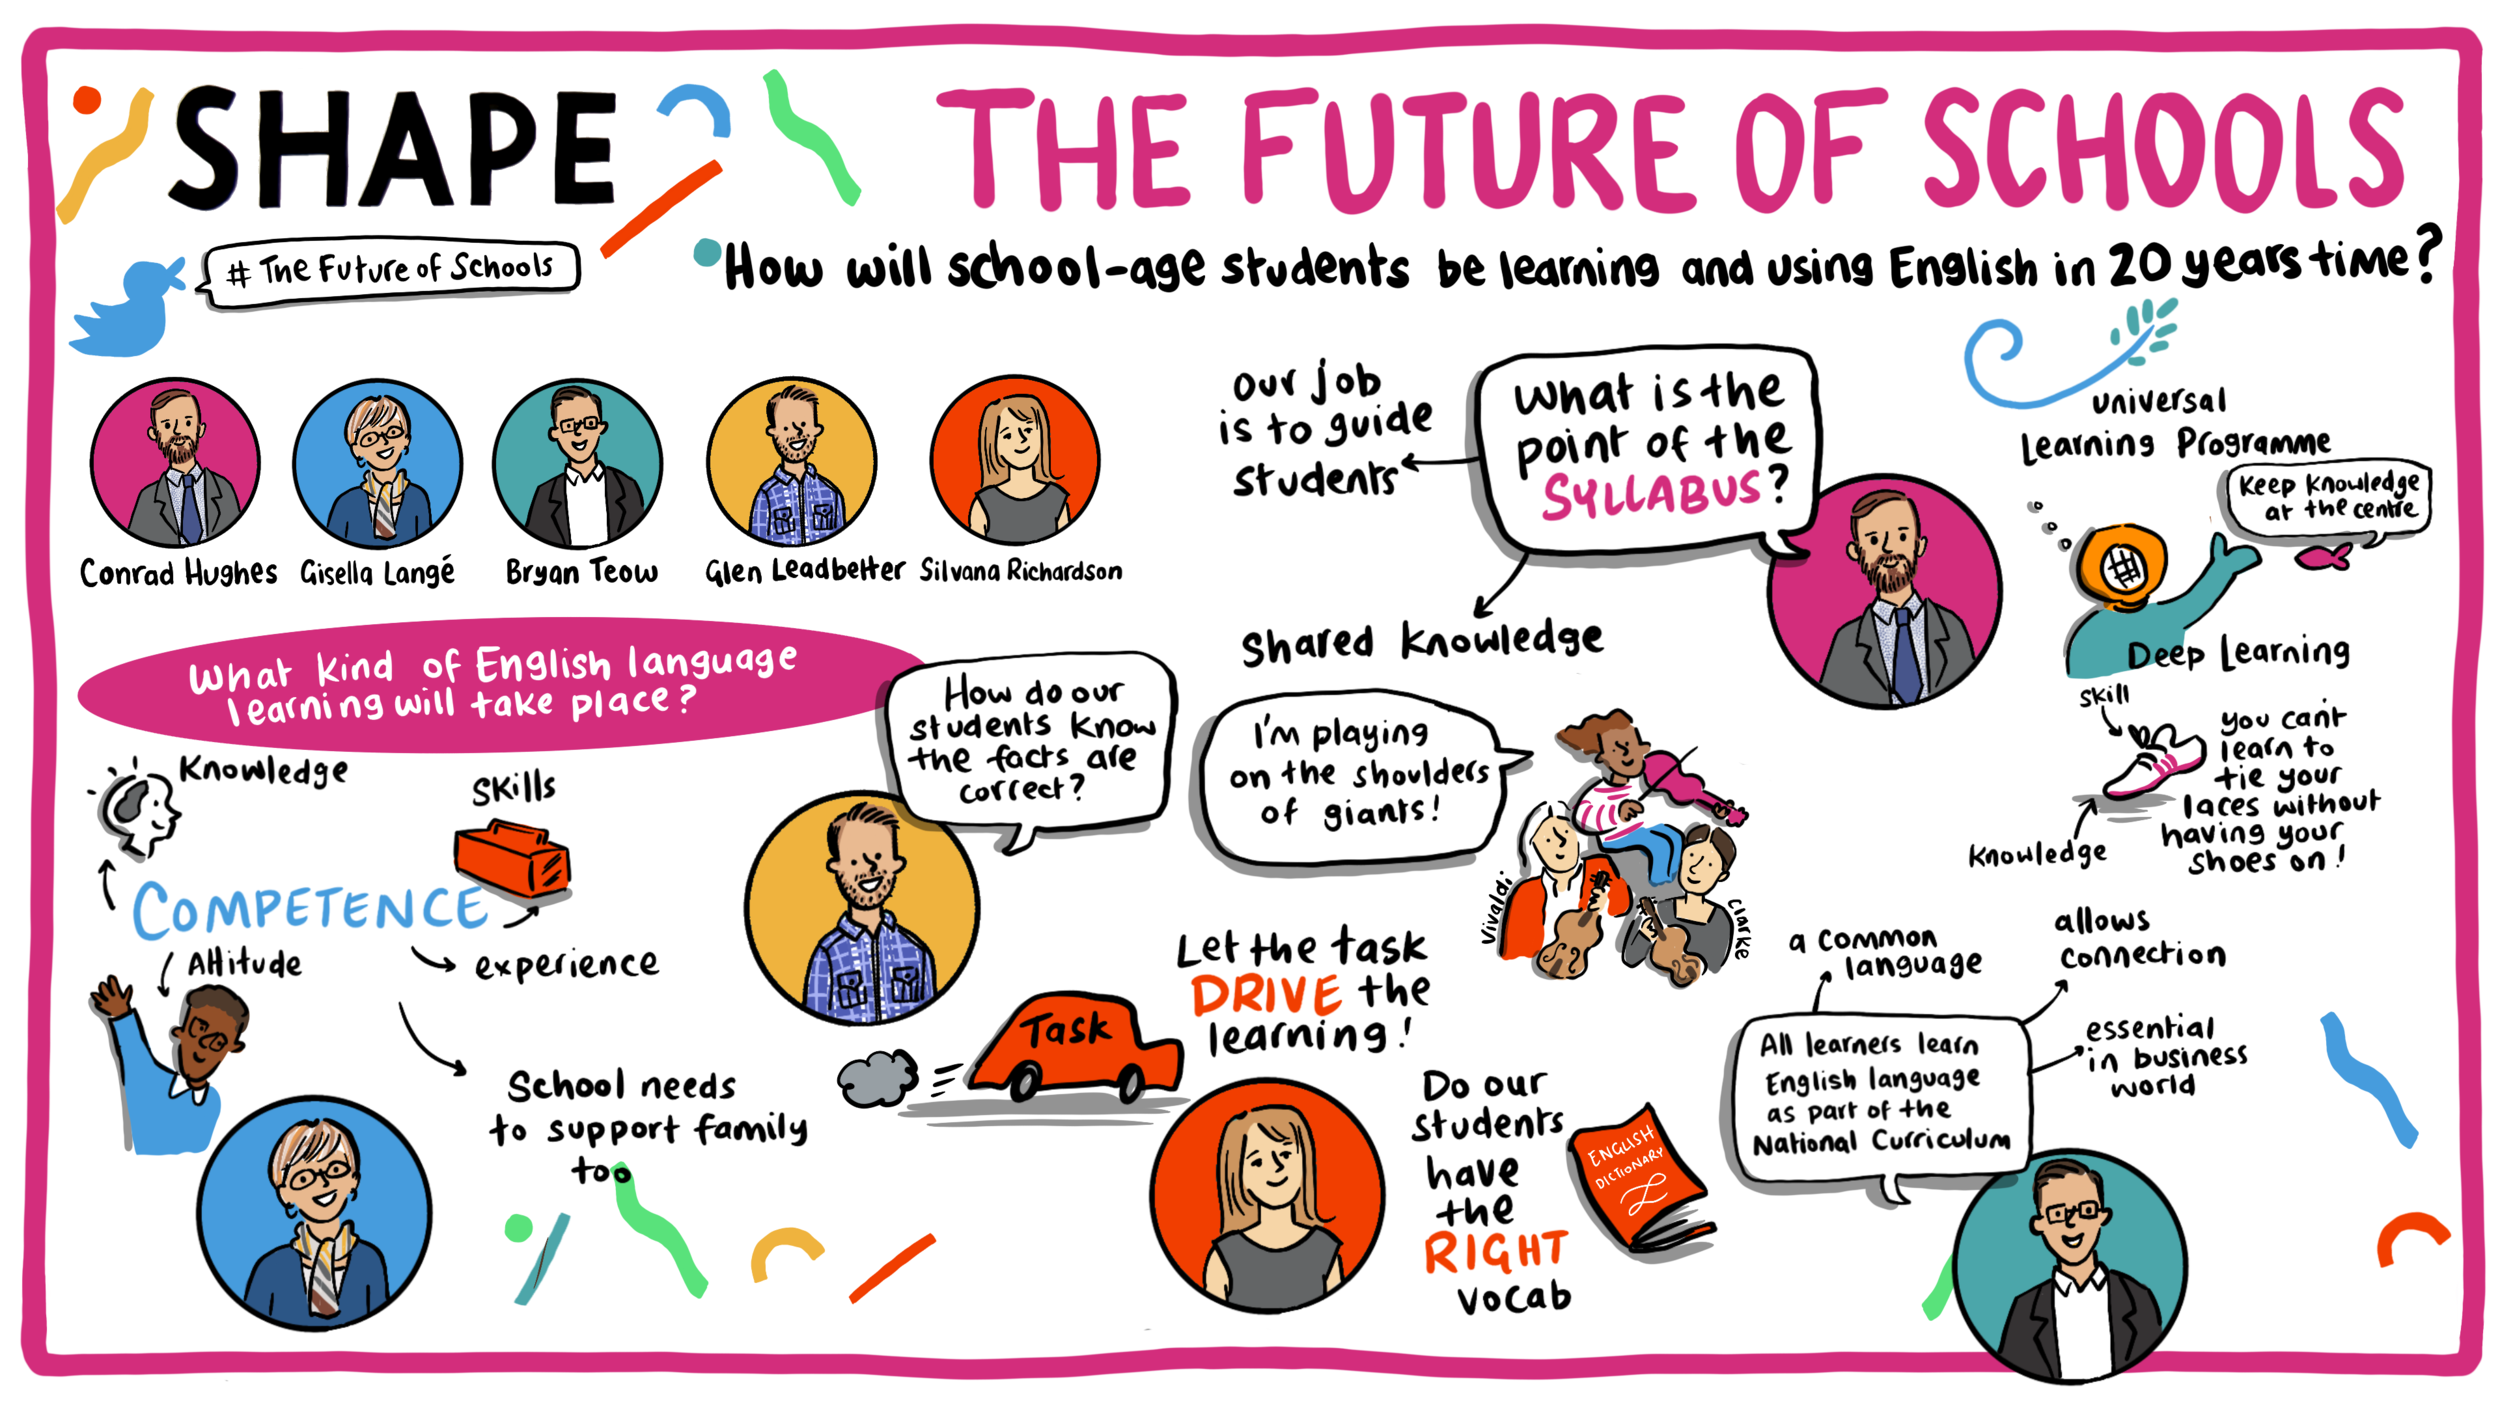 SHAPE
THE FUTURE OF SCHOOLS
# The Future of Schools
How will school-age students be learning and using English in 20 years time?
Conrad Hughes
Gisella Langé
Bryan Teow
Glen Leadbetter
Silvana Richardson
our job
is to guide
students
What is the
point of the
SYLLABUS?
Shared Knowledge
universal
Learning Programme
Keep Knowledge
at the centre
Deep Learning
skill
you can't
learn to
tie your
laces without
having your
shoes on!
Knowledge
What kind of English language
learning will take place?
Knowledge
Skills
COMPETENCE
Attitude
experience
School needs
to support family
too
How do our
students know
the facts are
correct?
I'm playing
on the shoulders
of giants!
Vivaldi
Clarke
Let the task
DRIVE the
learning!
Task
Do our
students
have
the
RIGHT
vocab
ENGLISH
DICTIONARY
a common
language
allows
connection
essential
in business
world
All learners learn
English language
as part of the
National Curriculum